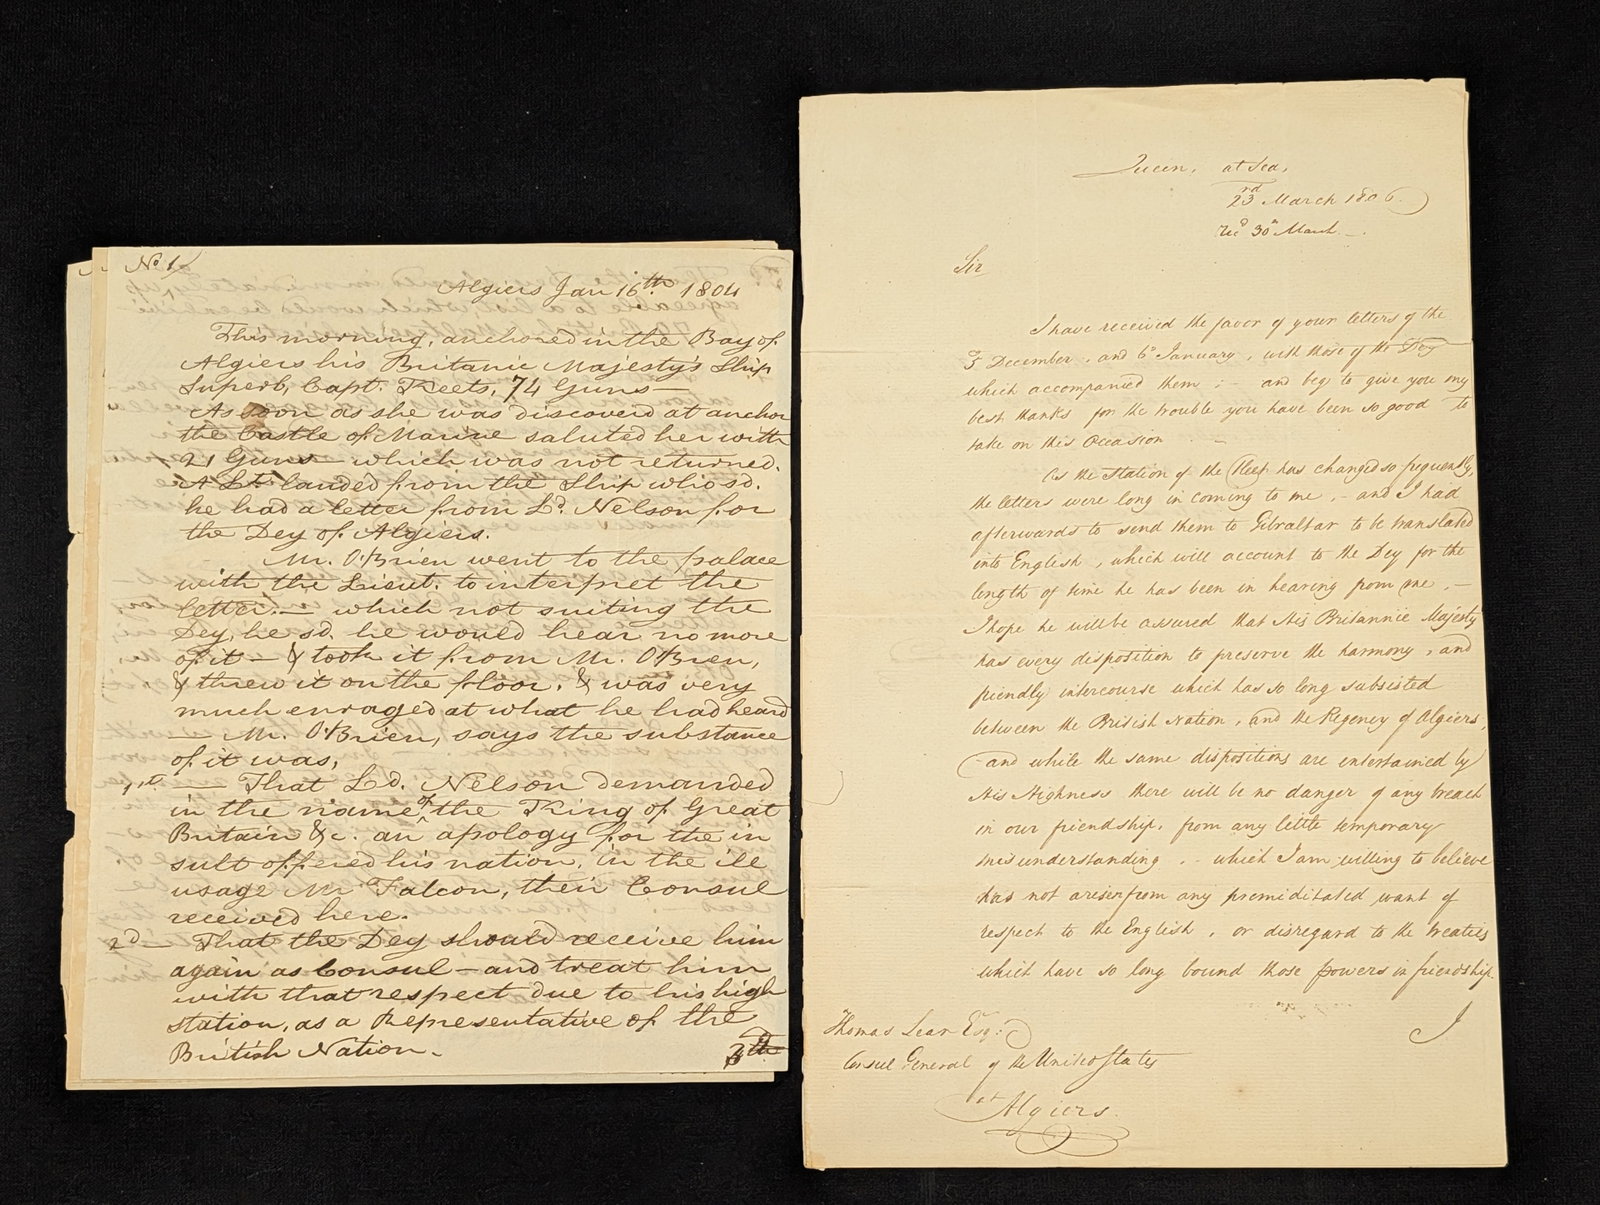 No 1
Algiers Jan 16th 1804
This morning, anchored in the Bay of
Algiers his Britanic Majesty's Ship
Superb, Capt. Keets, 74 Guns —
As soon as she was discoverd at anchor
the Castle of Marine saluted her with
21 Guns — which was not returned.
A Lt. landed from the Ship who sd.
he had a letter from Ld. Nelson for
the Dey of Algiers.
Mr. O'Brien went to the palace
with the Lieut. to interpret the
letter. — which not suiting the
Dey, he sd. he would hear no more
of it — & took it from Mr. O'Brien,
& threw it on the floor. & was very
much enraged at what he had heard
— Mr. O'Brien, says the substance
of it was,
1st. — That Ld. Nelson demanded
in the name of the King of Great
Britain &c. an apology for the in
sult offered his nation, in the ill
usage Mr Falcon, their Consul
received here.
2d — That the Dey should receive him
again as Consul — and treat him
with that respect due to his high
station, as a Representative of the
British Nation. —
Queen, at Sea,
23rd March 1806.
Recd 30th March. —.
Sir
I have received the favor of your letters of the
3d December, and 6th January, with those of the Dey
which accompanied them; — and beg to give you my
best thanks for the trouble you have been so good to
take on this Occasion —
As the Station of the Fleet has changed so frequently,
the letters were long in coming to me, — and I had
afterwards to send them to Gibraltar to be translated
into English, which will account to the Dey for the
length of time he has been in hearing from me. —
I hope he will be assured that His Britannic Majesty
has every disposition to preserve the harmony, and
friendly intercourse which has so long subsisted
between the British Nation, and the Regency of Algiers,
— and while the same dispositions are entertained by
His Highness there will be no danger of any breach
in our friendship, from any little temporary
misunderstanding, — which I am willing to believe
has not arisen from any premiditated want of
respect to the English, or disregard to the treaties
which have so long bound those powers in friendship.
I
Thomas Lear Esqr.
Consul General of the United States
at Algiers.